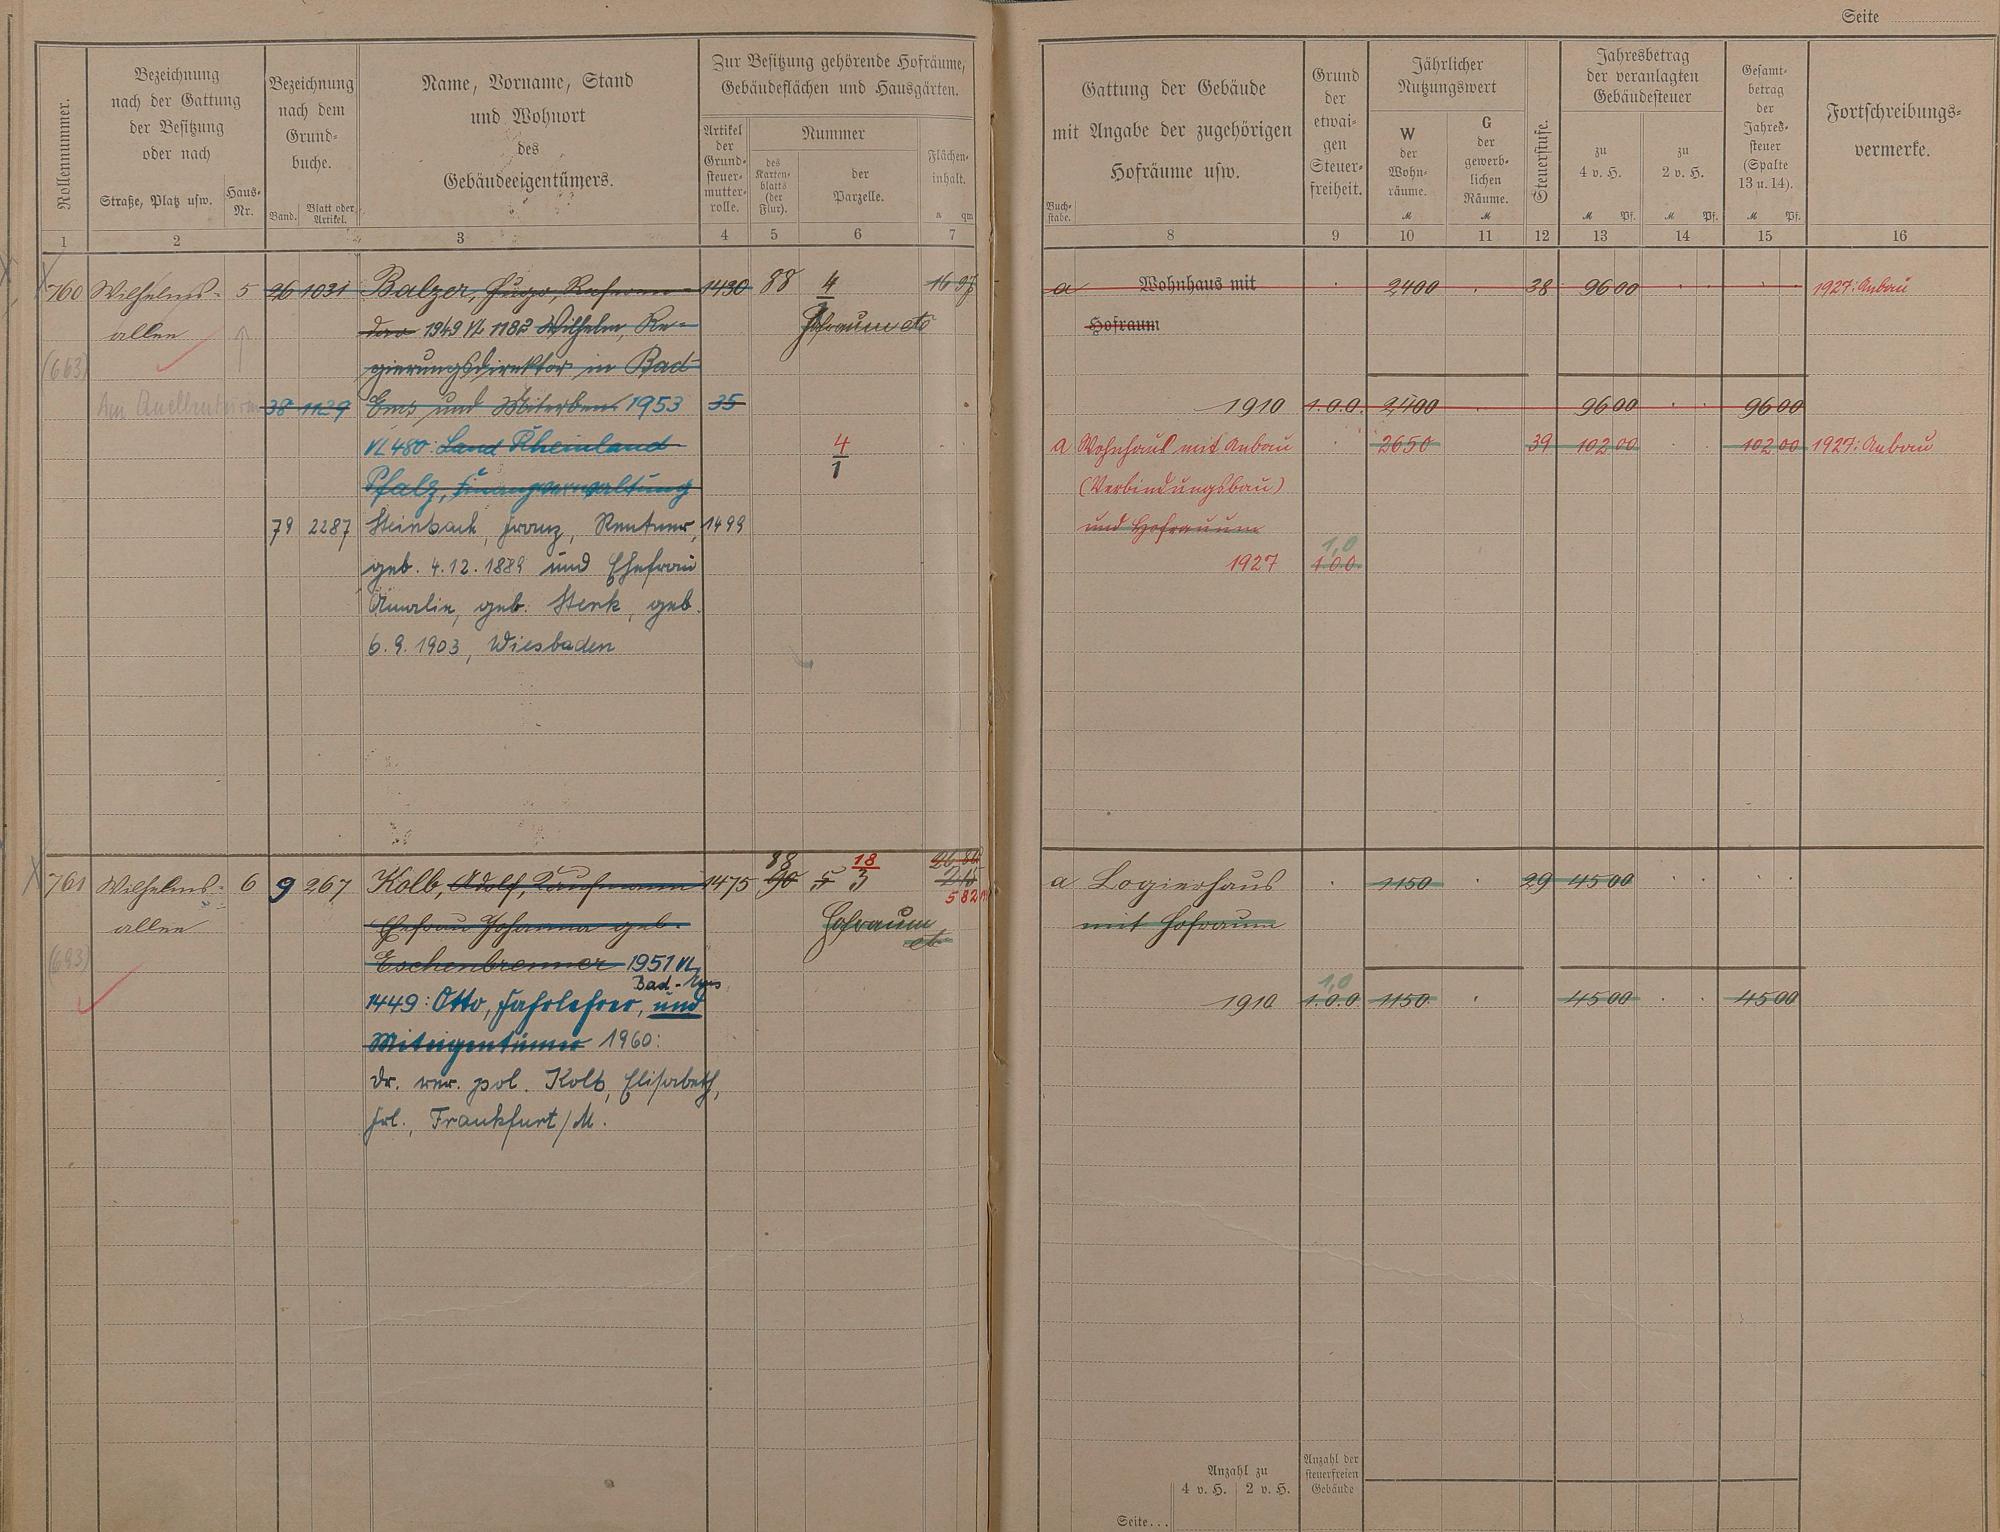 Seite
Rollennummer.
Bezeichnung
nach der Gattung
der Besitzung
oder nach
Straße, Platz usw.
Haus-
Nr.
Bezeichnung
nach dem
Grund-
buche.
Band.
Blatt oder
Artikel.
Name, Vorname, Stand
und Wohnort
des
Gebäudeeigentümers.
Zur Besitzung gehörende Hofräume,
Gebäudeflächen und Hausgärten.
Artikel
der
Grund-
steuer-
mutter-
rolle.
Nummer
des
Karten-
blatts
(der
Flur).
der
Parzelle.
Flächen-
inhalt.
a qm
1 2 3 4 5 6 7
Gattung der Gebäude
mit Angabe der zugehörigen
Hofräume usw.
Buch-
stabe.
Grund
der
etwai-
gen
Steuer-
freiheit.
Jährlicher
Nutzungswert
W
der
Wohn-
räume.
M
G
der
gewerb-
lichen
Räume.
M
Steuerstufe.
Jahresbetrag
der veranlagten
Gebäudesteuer
zu
4 v. H.
M Pf.
zu
2 v. H.
M Pf.
Gesamt-
betrag
der
Jahres-
steuer
(Spalte
13 u. 14).
M Pf.
Fortschreibungs-
vermerke.
8 9 10 11 12 13 14 15 16
760 Wilhelms- 5 26 1031 Balzer, Hugo, 1430 88 4/1 16 97
allee 1949 VL 1182 Wilhelm, Re- Hofraum etc
(663) gierungsdirektor in Bad
38 1129 Ems und Miterben 1953 35
VL 480: Land Rheinland 4/1
Pfalz, Finanzverwaltung
79 2287 Steinbach, Franz, Rentner, 1499
geb. 4.12.1889 und Ehefrau
Amalie, geb. Stenk, geb.
6.9.1903, Wiesbaden
a Wohnhaus mit 2400 38 96 00 1927: Anbau
Hofraum
1910 1.0.0. 2400 96 00 96 00
a Wohnhaus mit Anbau 2650 39 102 00 102 00 1927: Anbau
(Verbindungsbau)
und Hofraum
1,0
1927 1.0.0.
761 Wilhelms- 6 9 267 Kolb, Adolf, Kaufmann 1475 88 90 18/3 582
allee Ehefrau Johanna geb. Hofraum
(693) Eschenbrenner 1951 VL etc
Bad-Ems
1449: Otto, Fahrlehrer, und
Miteigentümer 1960:
Dr. rer. pol. Kolb, Elisabeth,
Frl., Frankfurt/M.
a Logierhaus 1150 29 45 00
mit Hofraum
1,0
1910 1.0.0 1150 45 00 45 00
Anzahl zu
4 v. H. 2 v. H.
Anzahl der
steuerfreien
Gebäude
Seite...